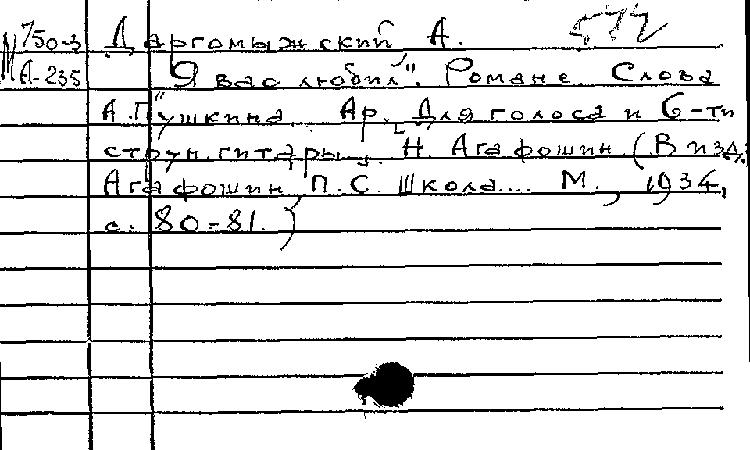 М 750-3 Даргомыжский А. 572
А-235 "Я вас любил". Романс. Слова
А. Пушкина. Ар. для голоса и 6-ти
струн. гитары Н. Агафошин (В изд.:
Агафошин, П. С. Школа.... М., 1934,
с. 80-81.)